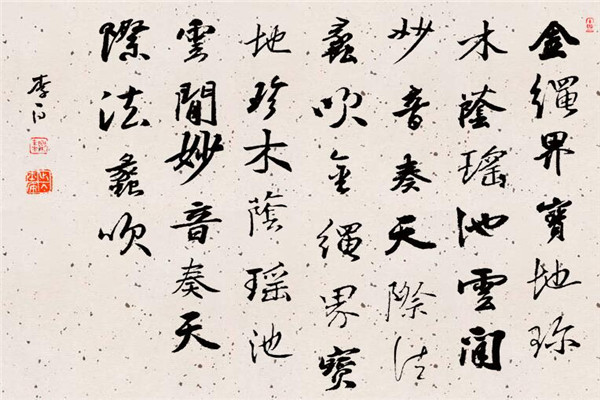 金繩界寶地珎
木蔭瑶池雲間
妙音奏天際法
蠡吹金繩界寶
地珍木蔭瑶池
雲間妙音奏天
際法蠡吹
李白